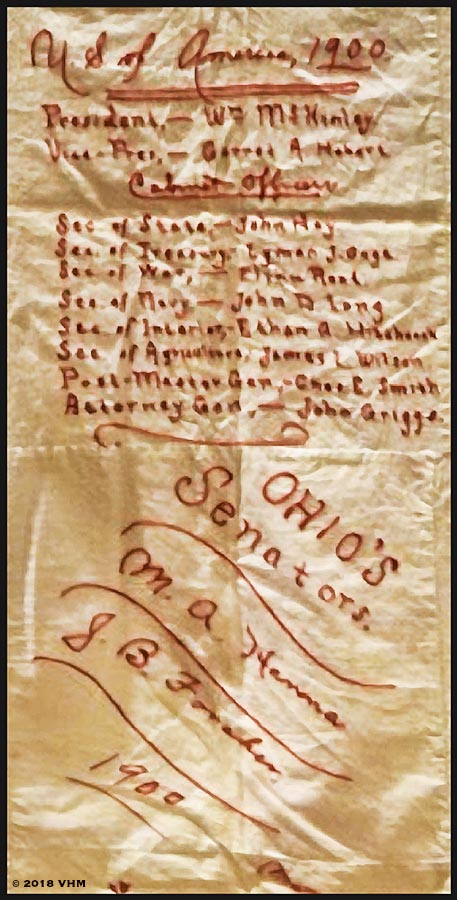 U. S of America, 1900.
President,— Wm McKinley
Vice-Pres,— Garret A Hobart
Cabinet Officers
Sec of State,— John Hay
Sec. of Treasury- Lyman J. Gage
Sec of War, — Elihu Root
Sec of Navy — John D Long
Sec. of Interior,- Ethan A Hitchcock
Sec of Agriculture, James L Wilson
Post-Master Gen,- Chas E. Smith
Attorney Gen,— John Griggs
OHIO'S
Senators.
M. A Hanna
J. B. Foraker
1900
© 2018 VHM